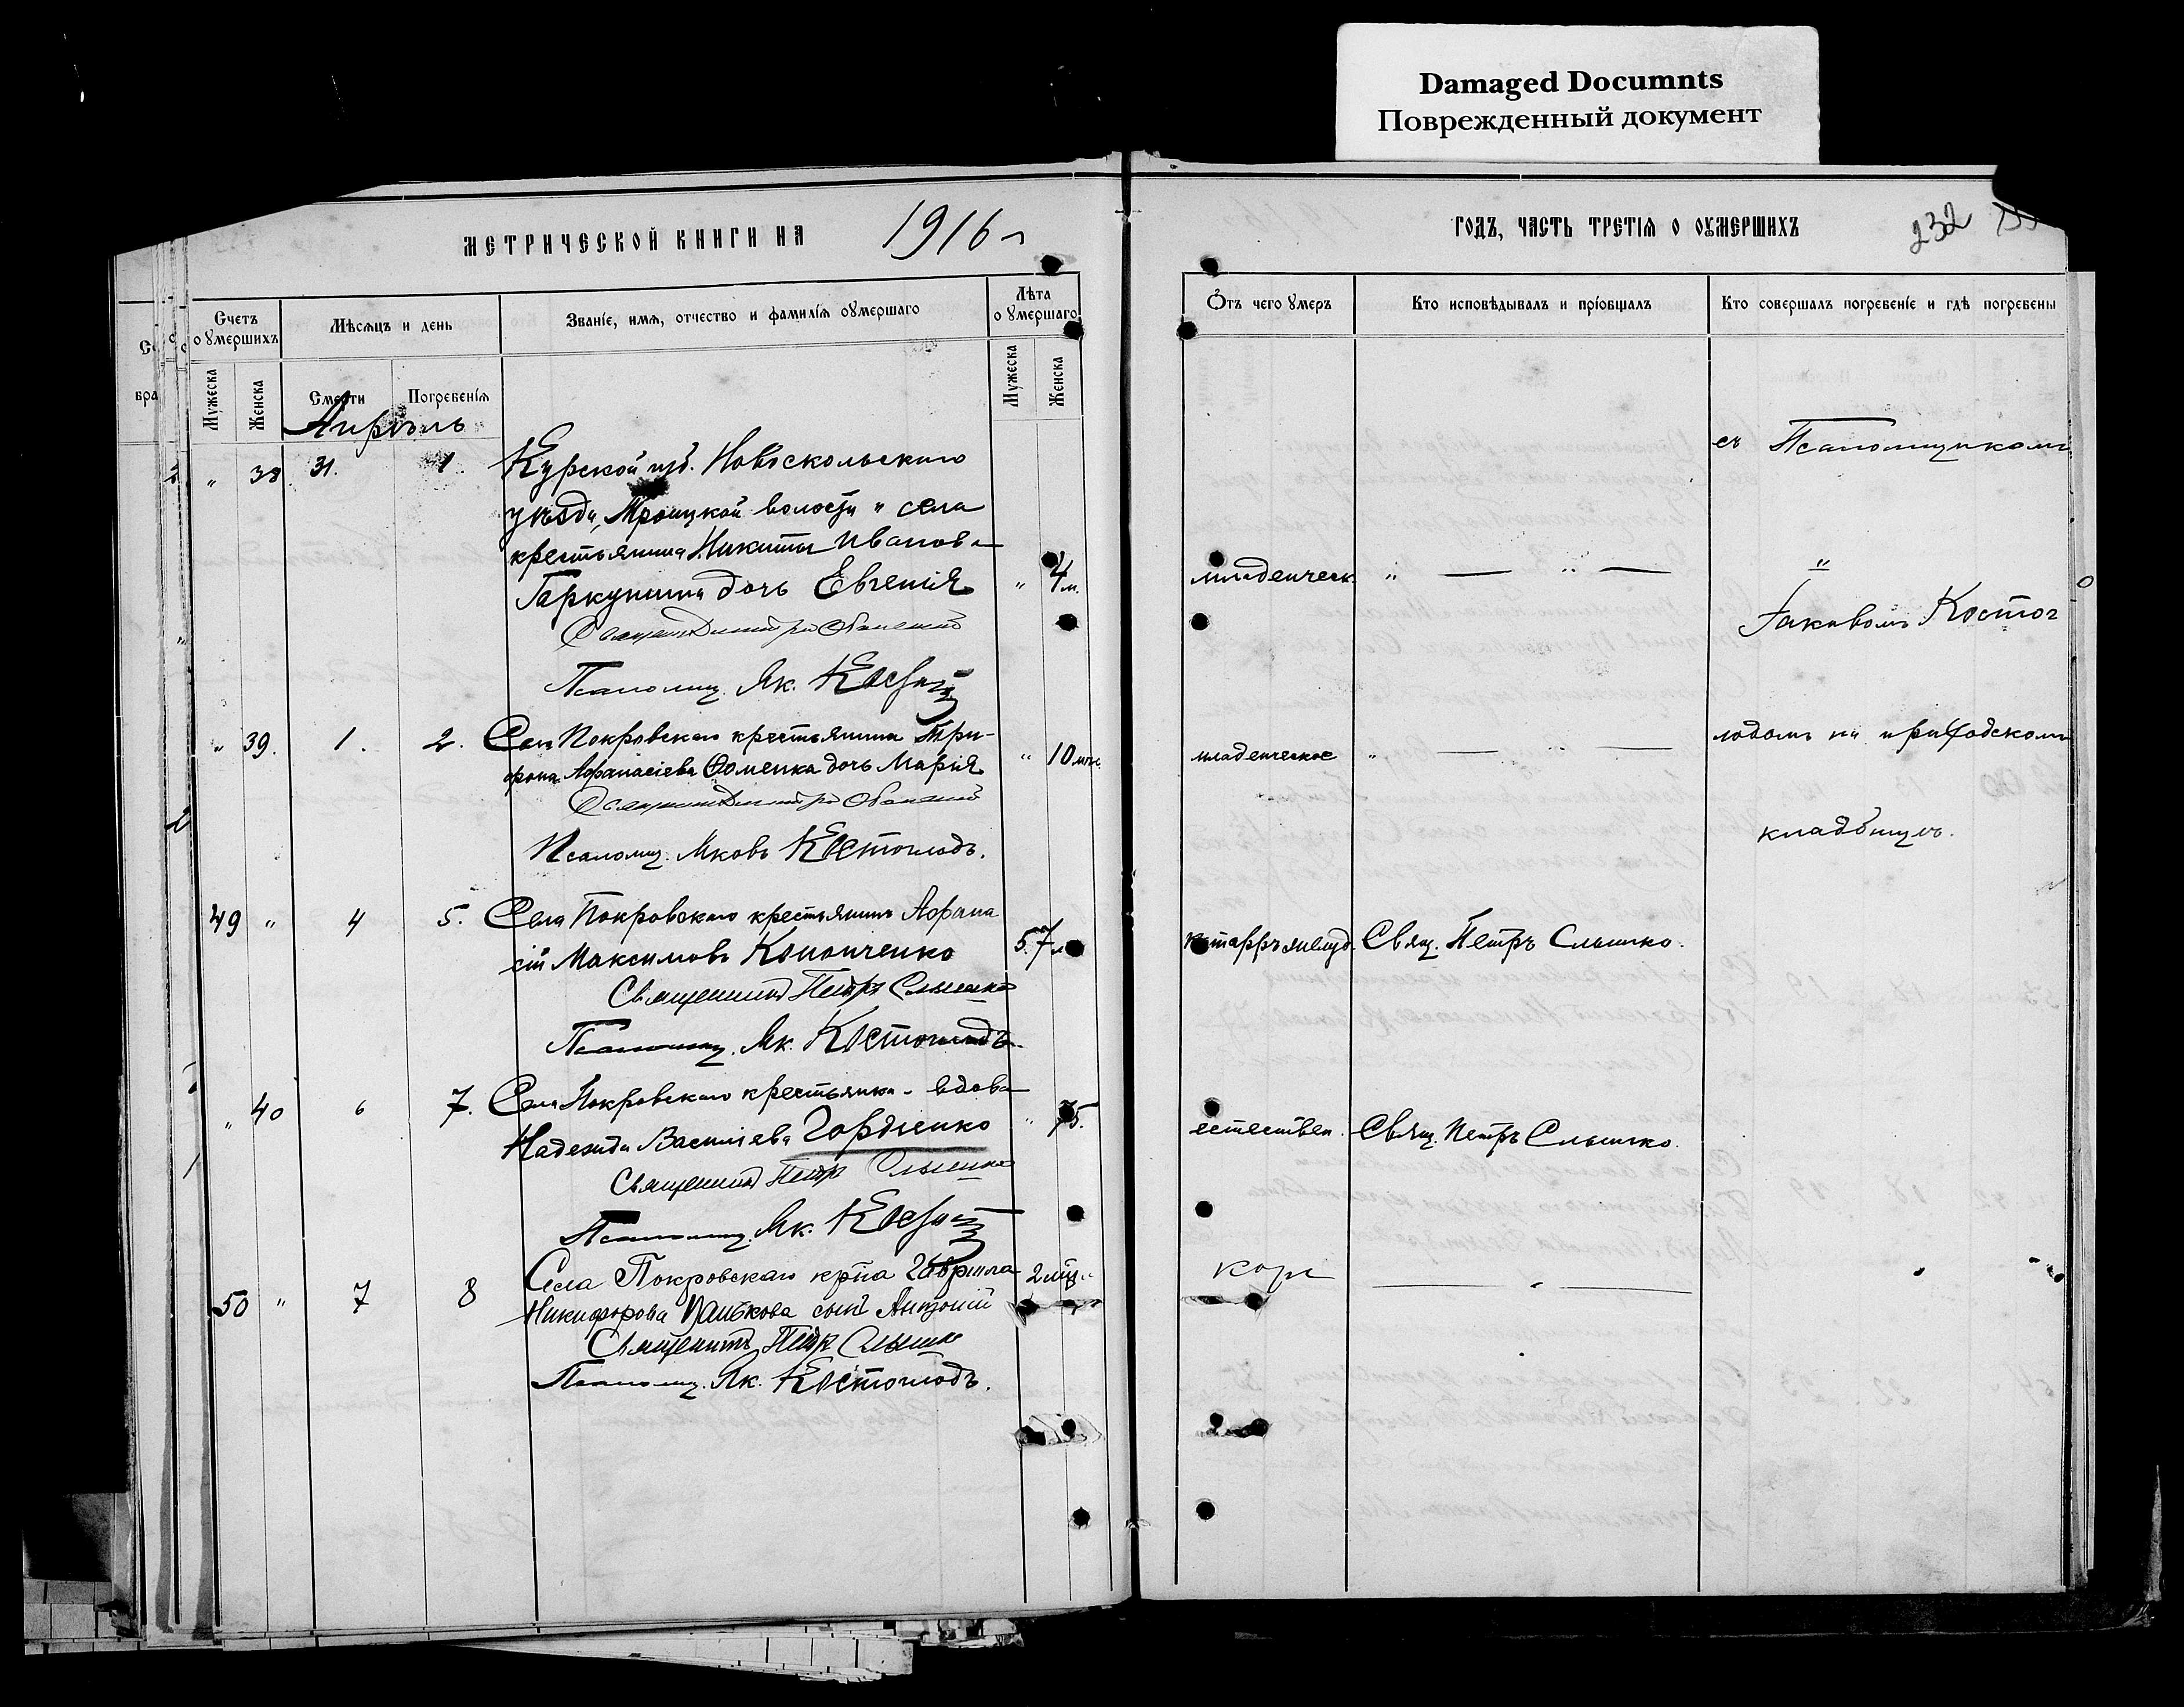 Damaged Documnts
Поврежденный документ
МЕТРИЧЕСКОЙ КНИГИ НА 1916
ГОДЪ, ЧАСТЬ ТРЕТІЯ О ОУМЕРШИХЪ 232
Счетъ оумершихъ
Мѣсяцъ и день
Званіе, имя, отчество и фамилія оумершаго
Лѣта оумершаго
Отъ чего умеръ
Кто исповѣдывалъ и пріобщалъ
Кто совершалъ погребеніе и гдѣ погребены
Мужеска Женска Смерти Погребенія Мужеска Женска
Апрѣль
" 38 31. 1. Курской губ. Новоскольскаго
уѣзда, Троицкой волости и села
крестьянина Никиты Иванова
Гаркушина дочь Евгенія " 4 м. младенческ. " "
Псаломщ. Як.
" 39. 1. 2. Села Покровскаго крестьянина Три-
фона Афанасіева Фоменка дочь Марія " 10 мѣс. младенческое "
Псаломщ. Яковъ Костоглодъ.
49 " 4 5. Села Покровскаго крестьянинъ Афана
сій Максимовъ Кононченко 57 л катарръ желуд. Свящ. Петръ Слышко.
Священникъ Петръ Слышко
Псаломщ. Як. Костоглодъ.
" 40 6 7. Села Покровскаго крестьянка - вдова
Надежда Василіева Гордіенко " 75. естествен. Свящ. Петръ Слышко.
Священникъ Петръ Слышко
Псаломщ. Як.
50 " 7 8 Села Покровскаго кр-на Гавріила 2 мѣс. " корь "
Никифорова сынъ Антоній
Священникъ Петръ Слышко
Псаломщ. Як. Костоглодъ.
съ Псаломщикомъ
Іаковомъ Костог
лодомъ на приходскомъ
кладбищѣ.